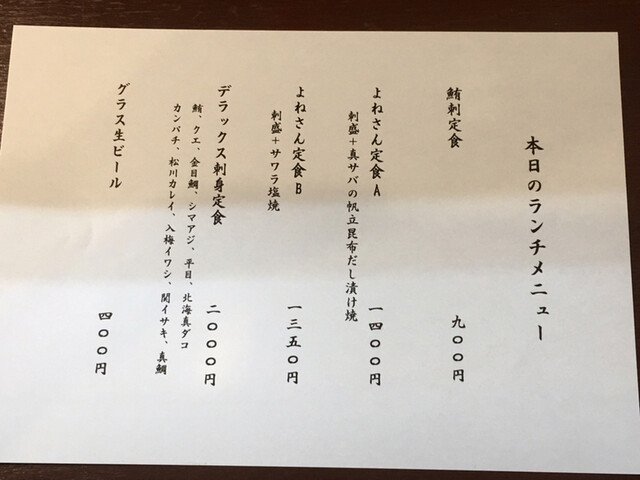 本日のランチメニュー
鮪刺定食
九〇〇円
よねさん定食A
一四〇〇円
刺盛+真サバの帆立昆布だし漬け焼
よねさん定食B
一三五〇円
刺盛+サワラ塩焼
デラックス刺身定食
二〇〇〇円
鮪、クエ、金目鯛、シマアジ、平目、北海真ダコ
カンパチ、松川カレイ、入梅イワシ、関イサキ、真鯛
グラス生ビール
四〇〇円